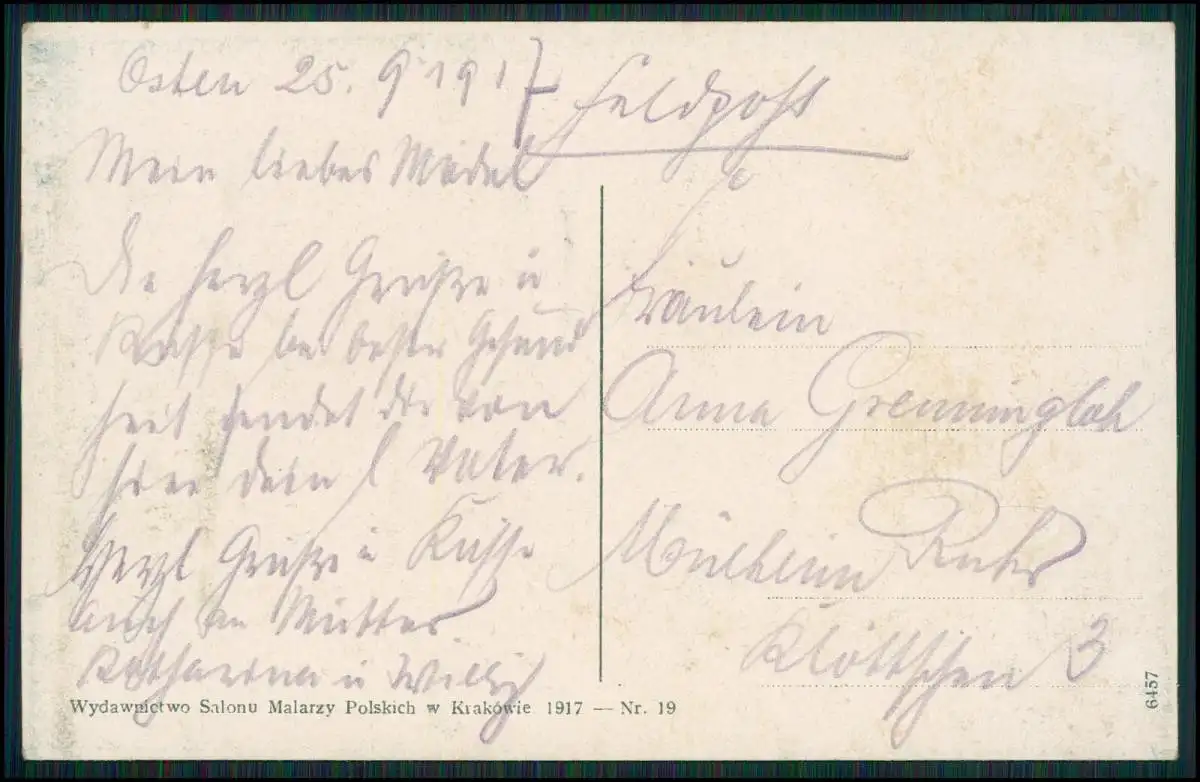 Osten 25. 9. 1917
Feldpost
Mein liebes Mädel
Die herzl Grüße u
Küsse bei bester Gesund
heit sendet dir von
hier dein l Vater.
Herzl Grüße u Küsse
auch an Mutter.
Katharina u Willy
Fräulein
Anna
Mülheim Ruhr
Klöttschen 3
Wydawnictwo Salonu Malarzy Polskich w Krakówie 1917 — Nr. 19
6457